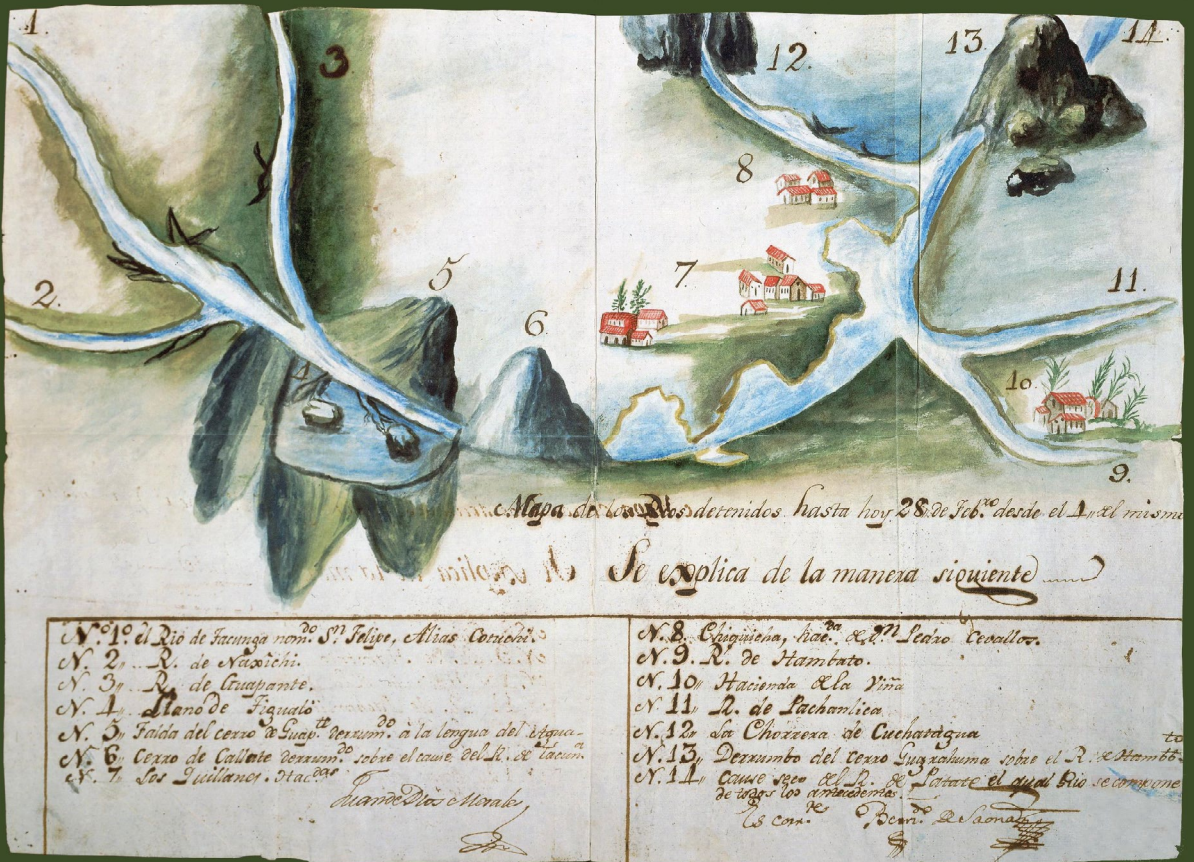 1.
2.
3
5
6.
7.
8
12.
13.
14.
11.
10.
9.
4
Mapa de los Rios detenidos hasta hoy 28 de Feb.ro desde el 4 del mismo
Se explica de la manera siguiente
N.o 1.o el Rio de Tacunga nom.do S.n Felipe, Alias Cotuchi.
N. 2,, R. de Naxichi.
N. 3,, R. de Guapante.
N. 4,, Llano de Figualò
N. 5,, Falda del cerro de Guap.te derrum.do à la lengua del Agua
N. 6,, Cerro de Callate derrum.do sobre el cause del R. de Tacun.a
N. 7,, Los Quillanes. Hac.das
Juan de Dios Morales
N. 8,, Chiquicha, hac.da de D.n Pedro Cevallos.
N. 9. R. de Hambato.
N. 10,, Hacienda de la Viña
N. 11,, R. de Pachanlica
N. 12,, La Chorrera de Cucharagua
N. 13,, Derrumbo del cerro Guaraluma sobre el R. de Hamb.to
N. 14,, cause seco del R. de Patate el qual Rio se compone
de todos los antecedentes.
Es cor.te Bern.do